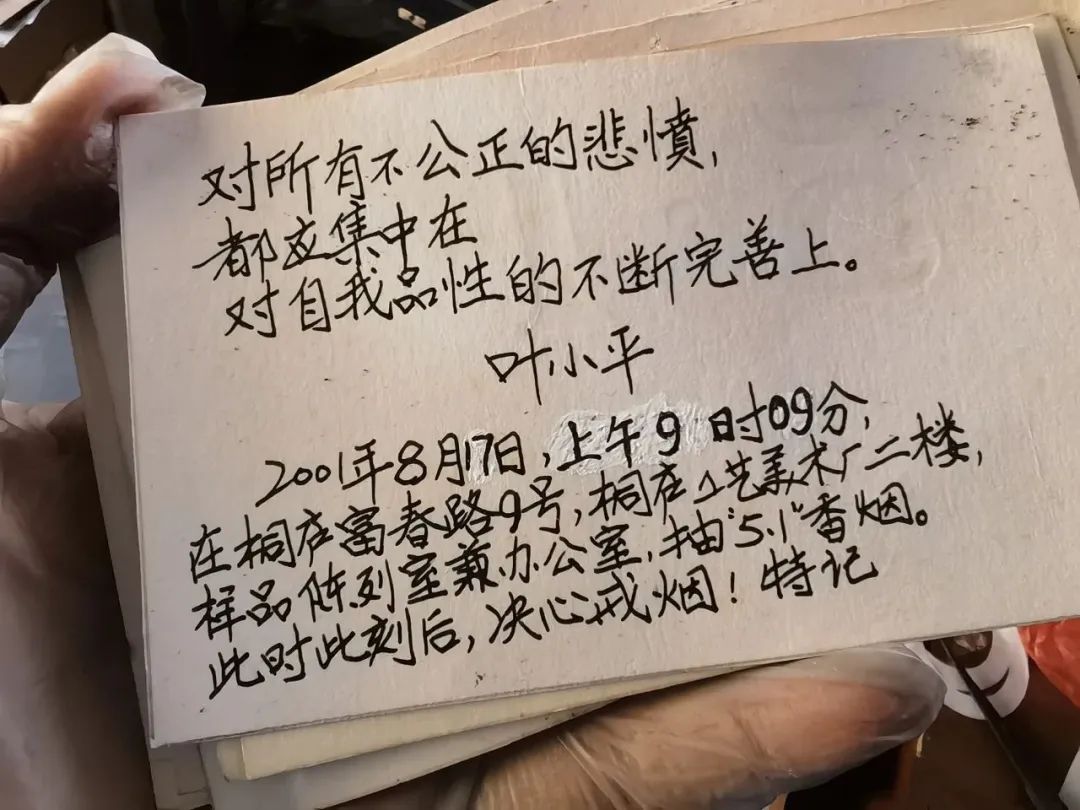 对所有不公正的悲愤，
都应集中在
对自我品性的不断完善上。
叶小平
2001年8月17日，上午9时09分，
在桐庐富春路9号，桐庐工艺美术厂二楼，
样品陈列室兼办公室，抽“5.1”香烟。
此时此刻后，决心戒烟！特记